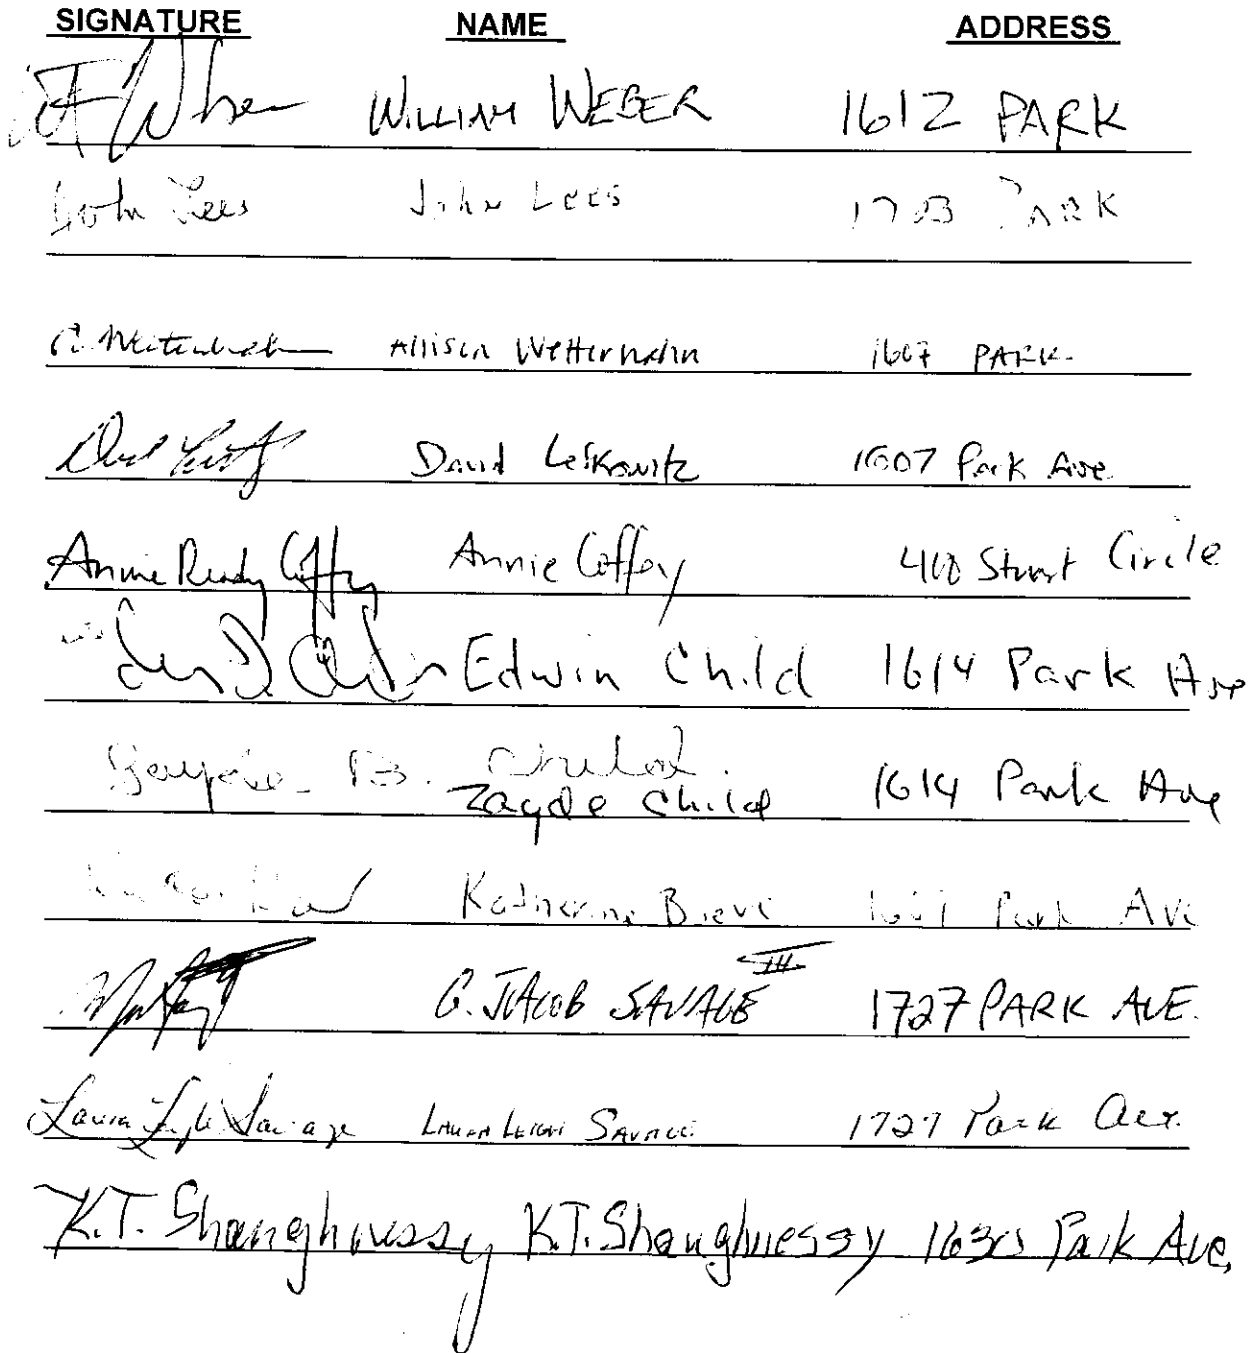 SIGNATURE NAME ADDRESS
WILLIAM WEBER 1612 PARK
John Lees John Lees PARK
Allison 1607 PARK
David Lefkowitz 1607 Park Ave.
Annie Ready Coffey Annie Coffey Stuart Circle
Edwin Child 1614 Park Ave
B. Child
Zayde Child 1614 Park Ave
Katherine Park Ave
G. JACOB SAVAGE III 1727 PARK AVE.
Laura Leigh Savage LAURA LEIGH SAVAGE 1727 Park Ave.
K.T. Shaughnessy K.T. Shaughnessy Park Ave.